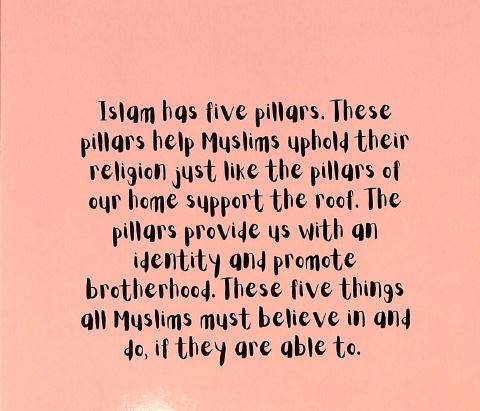 Islam has five pillars. These
pillars help Muslims uphold their
religion just like the pillars of
our home support the roof. The
pillars provide us with an
identity and promote
brotherhood. These five things
all Muslims must believe in and
do, if they are able to.